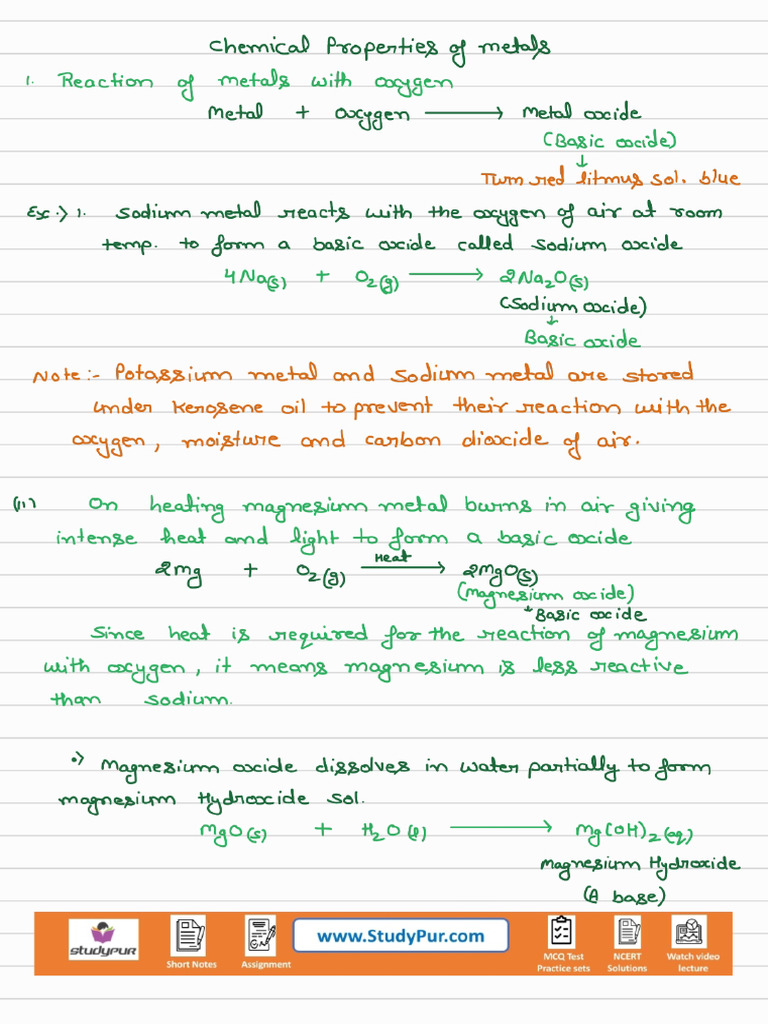 Chemical Properties of metals
1. Reaction of metals with oxygen
Metal + Oxygen ⟶ Metal oxide
(Basic oxide)
↓
Turn red litmus sol. blue
Ex:> 1. Sodium metal reacts with the oxygen of air at room
temp. to form a basic oxide called Sodium oxide
4Na(s) + O2(g) ⟶ 2Na2O(s)
(Sodium oxide)
↓
Basic oxide
Note:- Potassium metal and sodium metal are stored
under kerosene oil to prevent their reaction with the
oxygen, moisture and carbon dioxide of air.
(ii) On heating magnesium metal burns in air giving
intense heat and light to form a basic oxide
2Mg + O2(g) ⟶ Heat 2MgO(s)
(Magnesium oxide)
↓ Basic oxide
Since heat is required for the reaction of magnesium
with oxygen, it means magnesium is less reactive
than sodium.
•> Magnesium oxide dissolves in water partially to form
magnesium Hydroxide sol.
MgO(s) + H2O(l) ⟶ Mg(OH)2(aq)
Magnesium Hydroxide
(A base)
studypur
Short Notes
Assignment
www.StudyPur.com
MCQ Test
Practice sets
NCERT
Solutions
Watch video
lecture